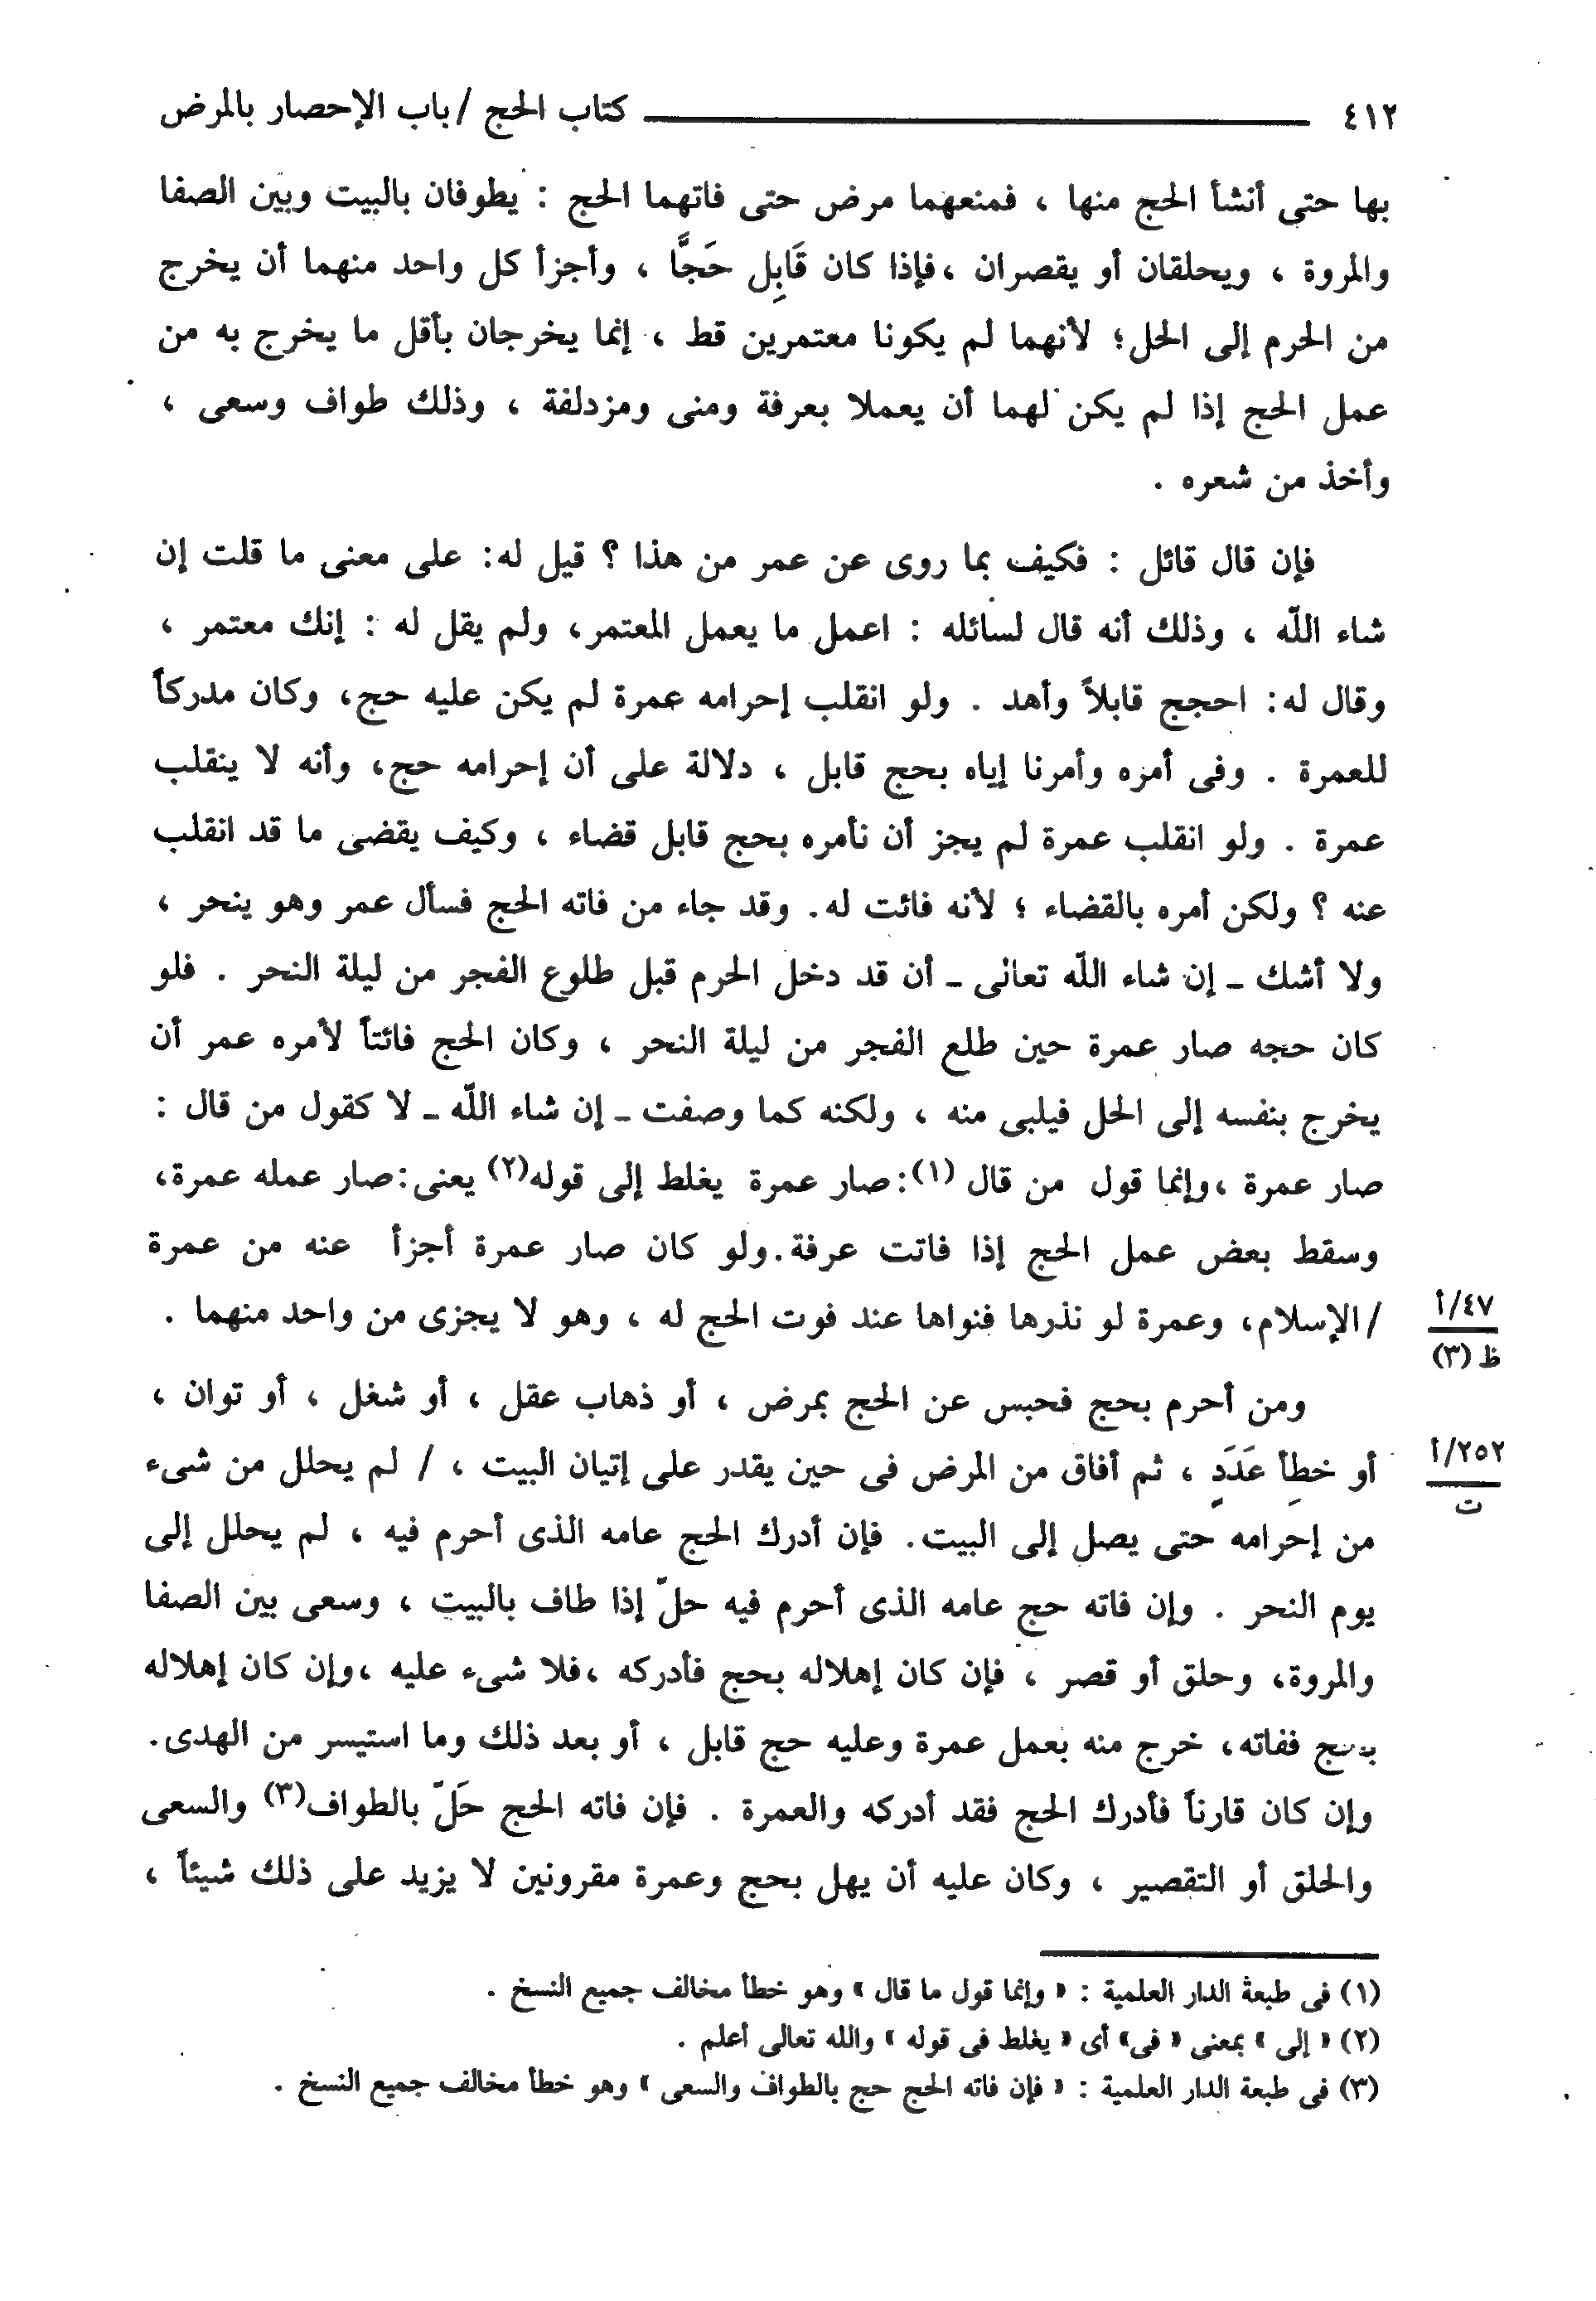 ٤١٢ كتاب الحج / باب الإحصار بالمرض
بها حتى أنشأ الحج منها ، فمنعهما مرض حتى فاتهما الحج : يطوفان بالبيت وبين الصفا
والمروة ، ويحلقان أو يقصران ،فإذا كان قَابِل حَجَّا ، وأجزأ كل واحد منهما أن يخرج
من الحرم إلى الحل؛ لأنهما لم يكونا معتمرين قط ، إنما يخرجان بأقل ما يخرج به من
عمل الحج إذا لم يكن لهما أن يعملا بعرفة ومنى ومزدلفة ، وذلك طواف وسعى ،
وأخذ من شعره .
فإن قال قائل : فكيف بما روى عن عمر من هذا ؟ قيل له: على معنى ما قلت إن
شاء اللّه ، وذلك أنه قال لسائله : اعمل ما يعمل المعتمر، ولم يقل له : إنك معتمر ،
وقال له: احجج قابلاً وأهد . ولو انقلب إحرامه عمرة لم يكن عليه حج، وكان مدركاً
للعمرة . وفى أمره وأمرنا إياه بحج قابل ، دلالة على أن إحرامه حج، وأنه لا ينقلب
عمرة . ولو انقلب عمرة لم يجز أن نأمره بحج قابل قضاء ، وكيف يقضى ما قد انقلب
عنه ؟ ولكن أمره بالقضاء ؛ لأنه فائت له. وقد جاء من فاته الحج فسأل عمر وهو ينحر ،
ولا أشك ـ إن شاء اللّه تعالى ـ أن قد دخل الحرم قبل طلوع الفجر من ليلة النحر . فلو
كان حجه صار عمرة حين طلع الفجر من ليلة النحر ، وكان الحج فائتاً لأمره عمر أن
يخرج بنفسه إلى الحل فيلبى منه ، ولكنه كما وصفت ـ إن شاء اللّه ـ لا كقول من قال :
صار عمرة ،وإنما قول من قال (١):صار عمرة يغلط إلى قوله(٢) يعنى:صار عمله عمرة،
وسقط بعض عمل الحج إذا فاتت عرفة.ولو كان صار عمرة أجزأ عنه من عمرة
/الإسلام، وعمرة لو نذرها فنواها عند فوت الحج له ، وهو لا يجزى من واحد منهما .
٤٧/أ
ظ (٣)
ومن أحرم بحج فحبس عن الحج بمرض ، أو ذهاب عقل ، أو شغل ، أو توان ،
أو خطأ عَدَدٍ ، ثم أفاق من المرض فى حين يقدر على إتيان البيت ، / لم يحلل من شىء
٢٥٢/أ
ت
من إحرامه حتى يصل إلى البيت. فإن أدرك الحج عامه الذى أحرم فيه ، لم يحلل إلى
يوم النحر . وإن فاته حج عامه الذى أحرم فيه حلّ إذا طاف بالبيت ، وسعى بين الصفا
والمروة، وحلق أو قصر ، فإن كان إهلاله بحج فأدركه ،فلا شىء عليه ،وإن كان إهلاله
بحج ففاته، خرج منه بعمل عمرة وعليه حج قابل ، أو بعد ذلك وما استيسر من الهدى.
وإن كان قارناً فأدرك الحج فقد أدركه والعمرة . فإن فاته الحج حَلّ بالطواف(٣) والسعى
والحلق أو التقصير ، وكان عليه أن يهل بحج وعمرة مقرونين لا يزيد على ذلك شيئاً ،
(١) فى طبعة الدار العلمية : « وإنما قول ما قال » وهو خطأ مخالف جميع النسخ .
(٢) « إلى » بمعنى « فى» أى « يغلط فى قوله » والله تعالى أعلم .
(٣) فى طبعة الدار العلمية : « فإن فاته الحج حج بالطواف والسعى » وهو خطأ مخالف جميع النسخ .